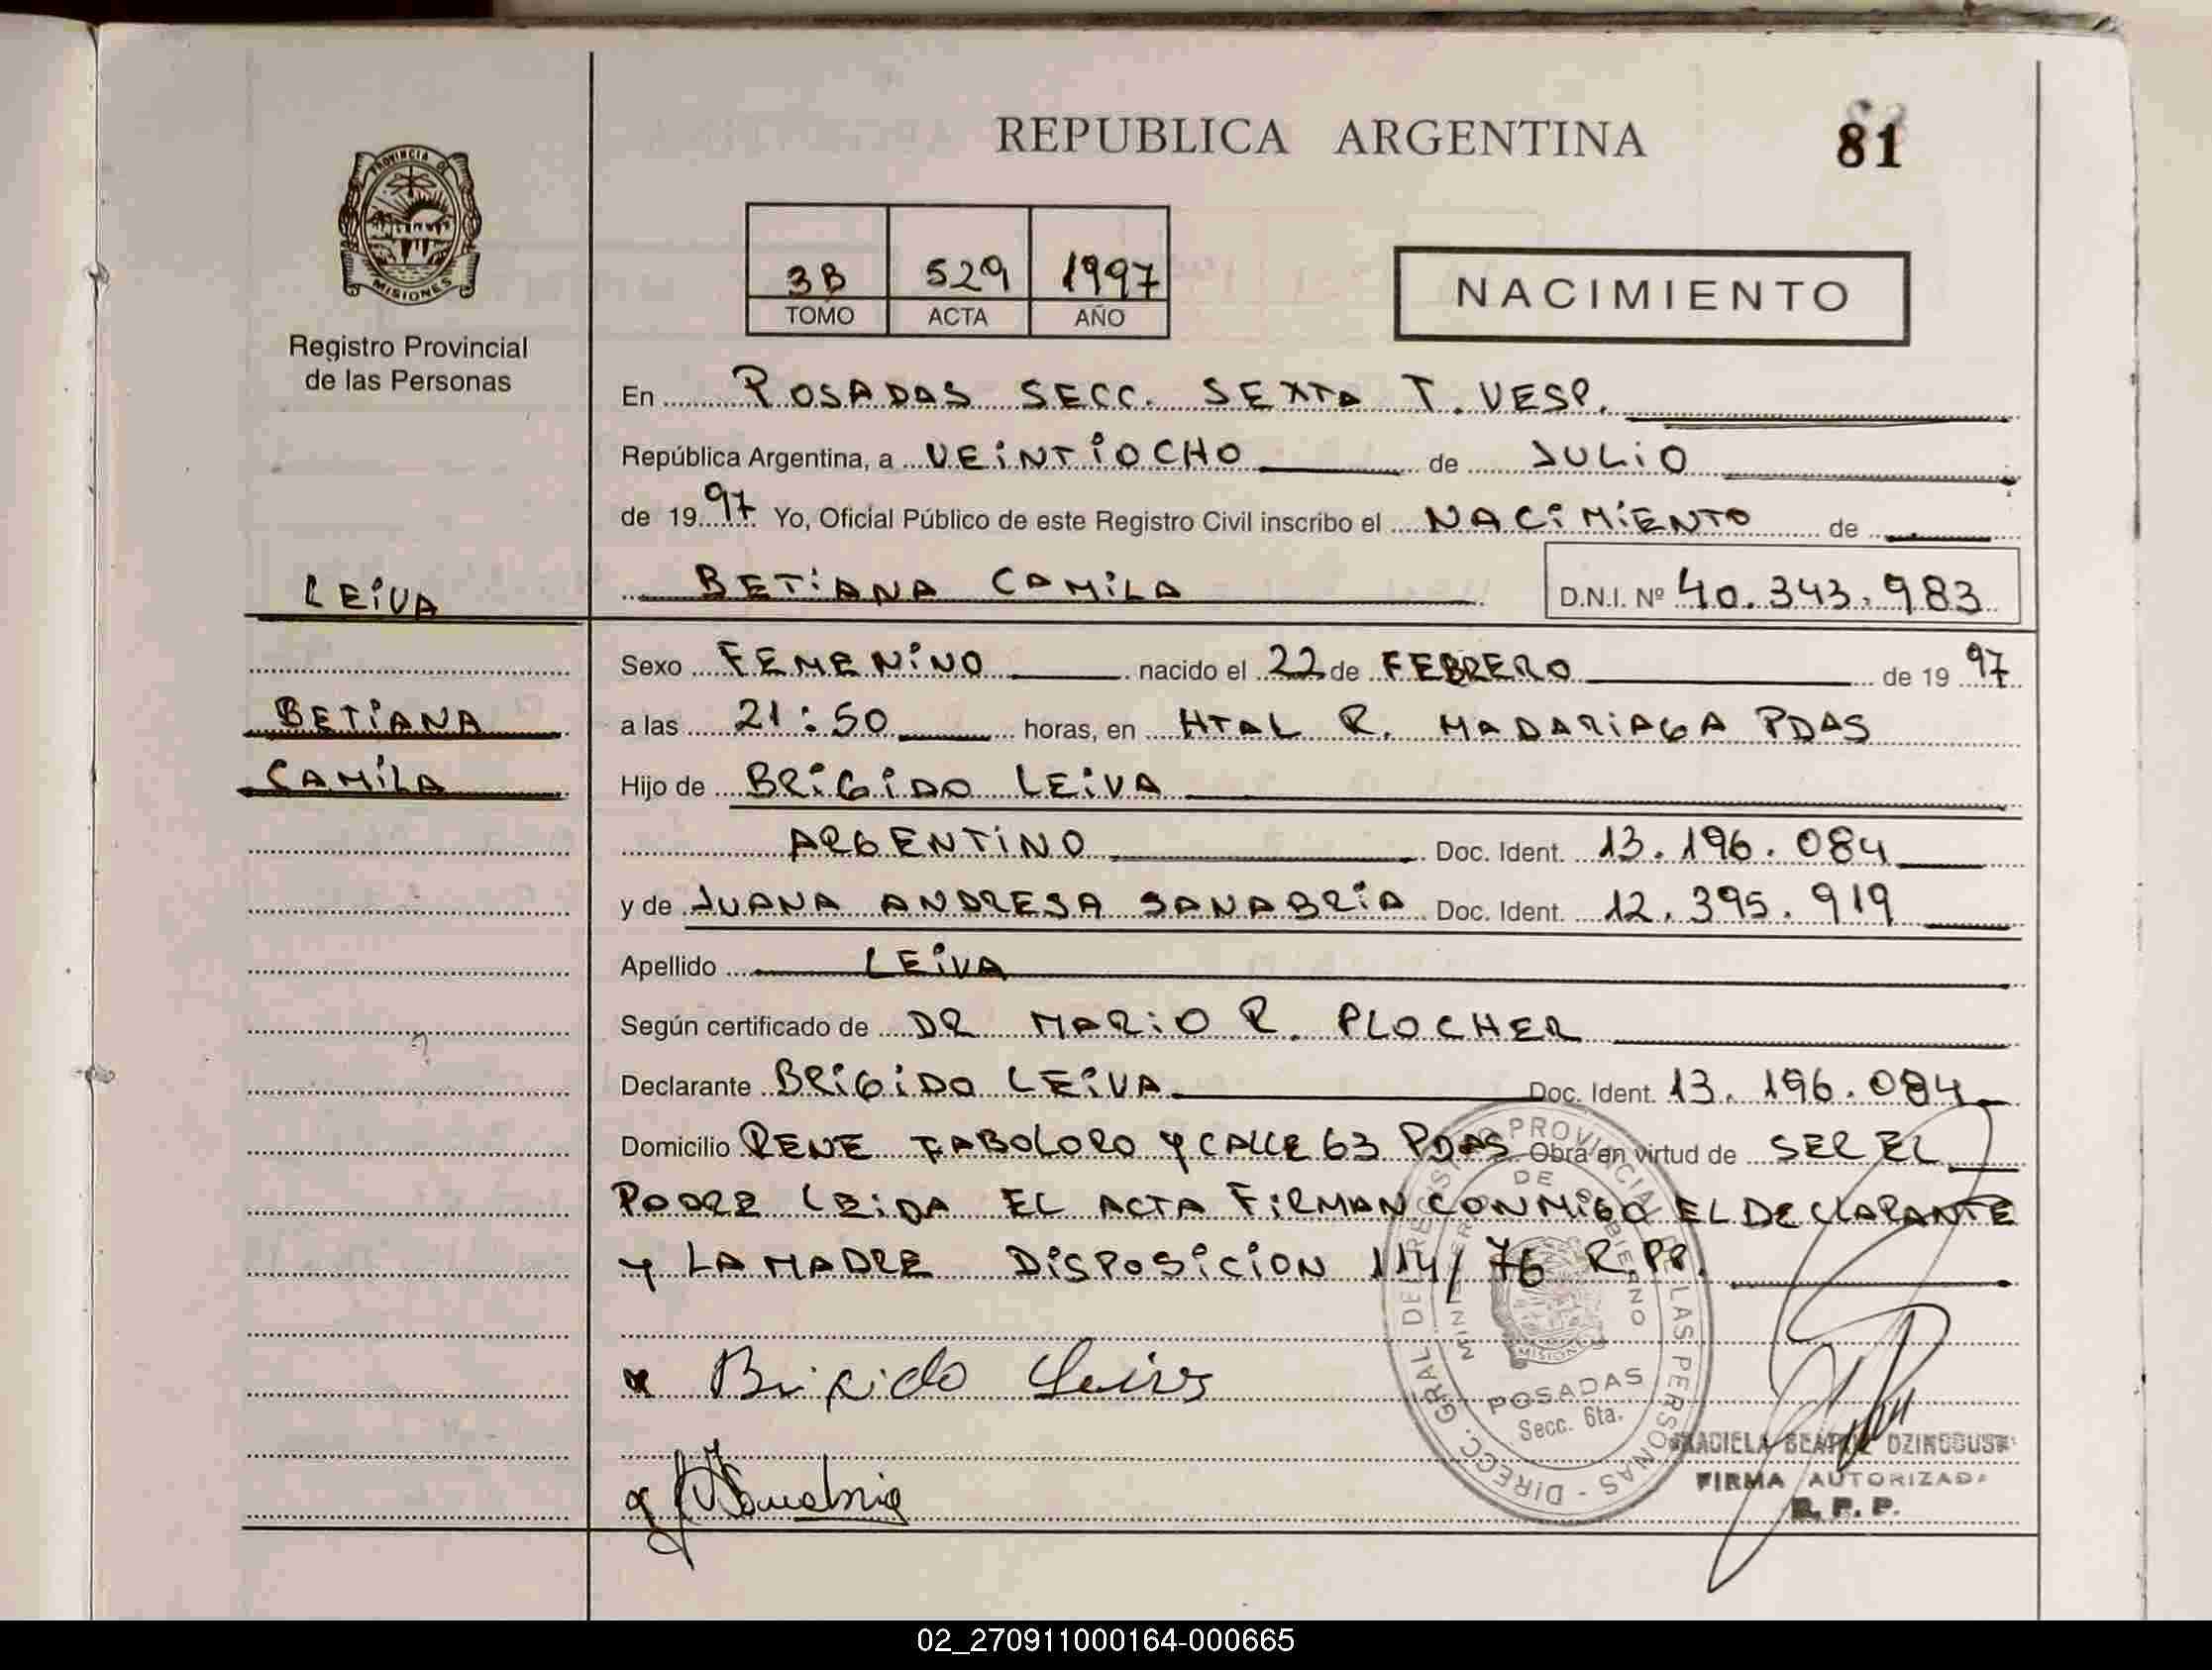 REPUBLICA ARGENTINA
81
PROVINCIA DE
MISIONES
Registro Provincial
de las Personas
3B 529 1997
TOMO ACTA AÑO
NACIMIENTO
En POSADAS SECC. SEXTA T. VESP.
República Argentina, a VEINTIOCHO de JULIO
de 1997 Yo, Oficial Público de este Registro Civil inscribo el NACIMIENTO de
LEIVA
BETIANA CAMILA D.N.I. Nº 40.343.983
Sexo FEMENINO nacido el 22 de FEBRERO de 1997
BETIANA
a las 21:50 horas, en HTAL R. MADARIAGA PDAS
CAMILA
Hijo de BRIGIDO LEIVA
ARGENTINO Doc. Ident. 13.196.084
y de JUANA ANDRESA SANABRIA Doc. Ident. 12.395.919
Apellido LEIVA
Según certificado de DR MARIO R. PLOCHER
Declarante BRIGIDO LEIVA Doc. Ident. 13.196.084
Domicilio RENE FABOLORO Y CALLE 63 PDAS Obra en virtud de SER EL
PADRE LEIDA EL ACTA FIRMAN CONMIGO EL DECLARANTE
Y LA MADRE DISPOSICION 114/76 R.PP.
Brigido Leiva
Sanabria
DIRECC. GRAL DE REGISTRO PROVINCIAL DE LAS PERSONAS
MINISTERIO DE GOBIERNO
MISIONES
POSADAS
Secc. 6ta.
FIRMA AUTORIZADA
R. P. P.
02_270911000164-000665